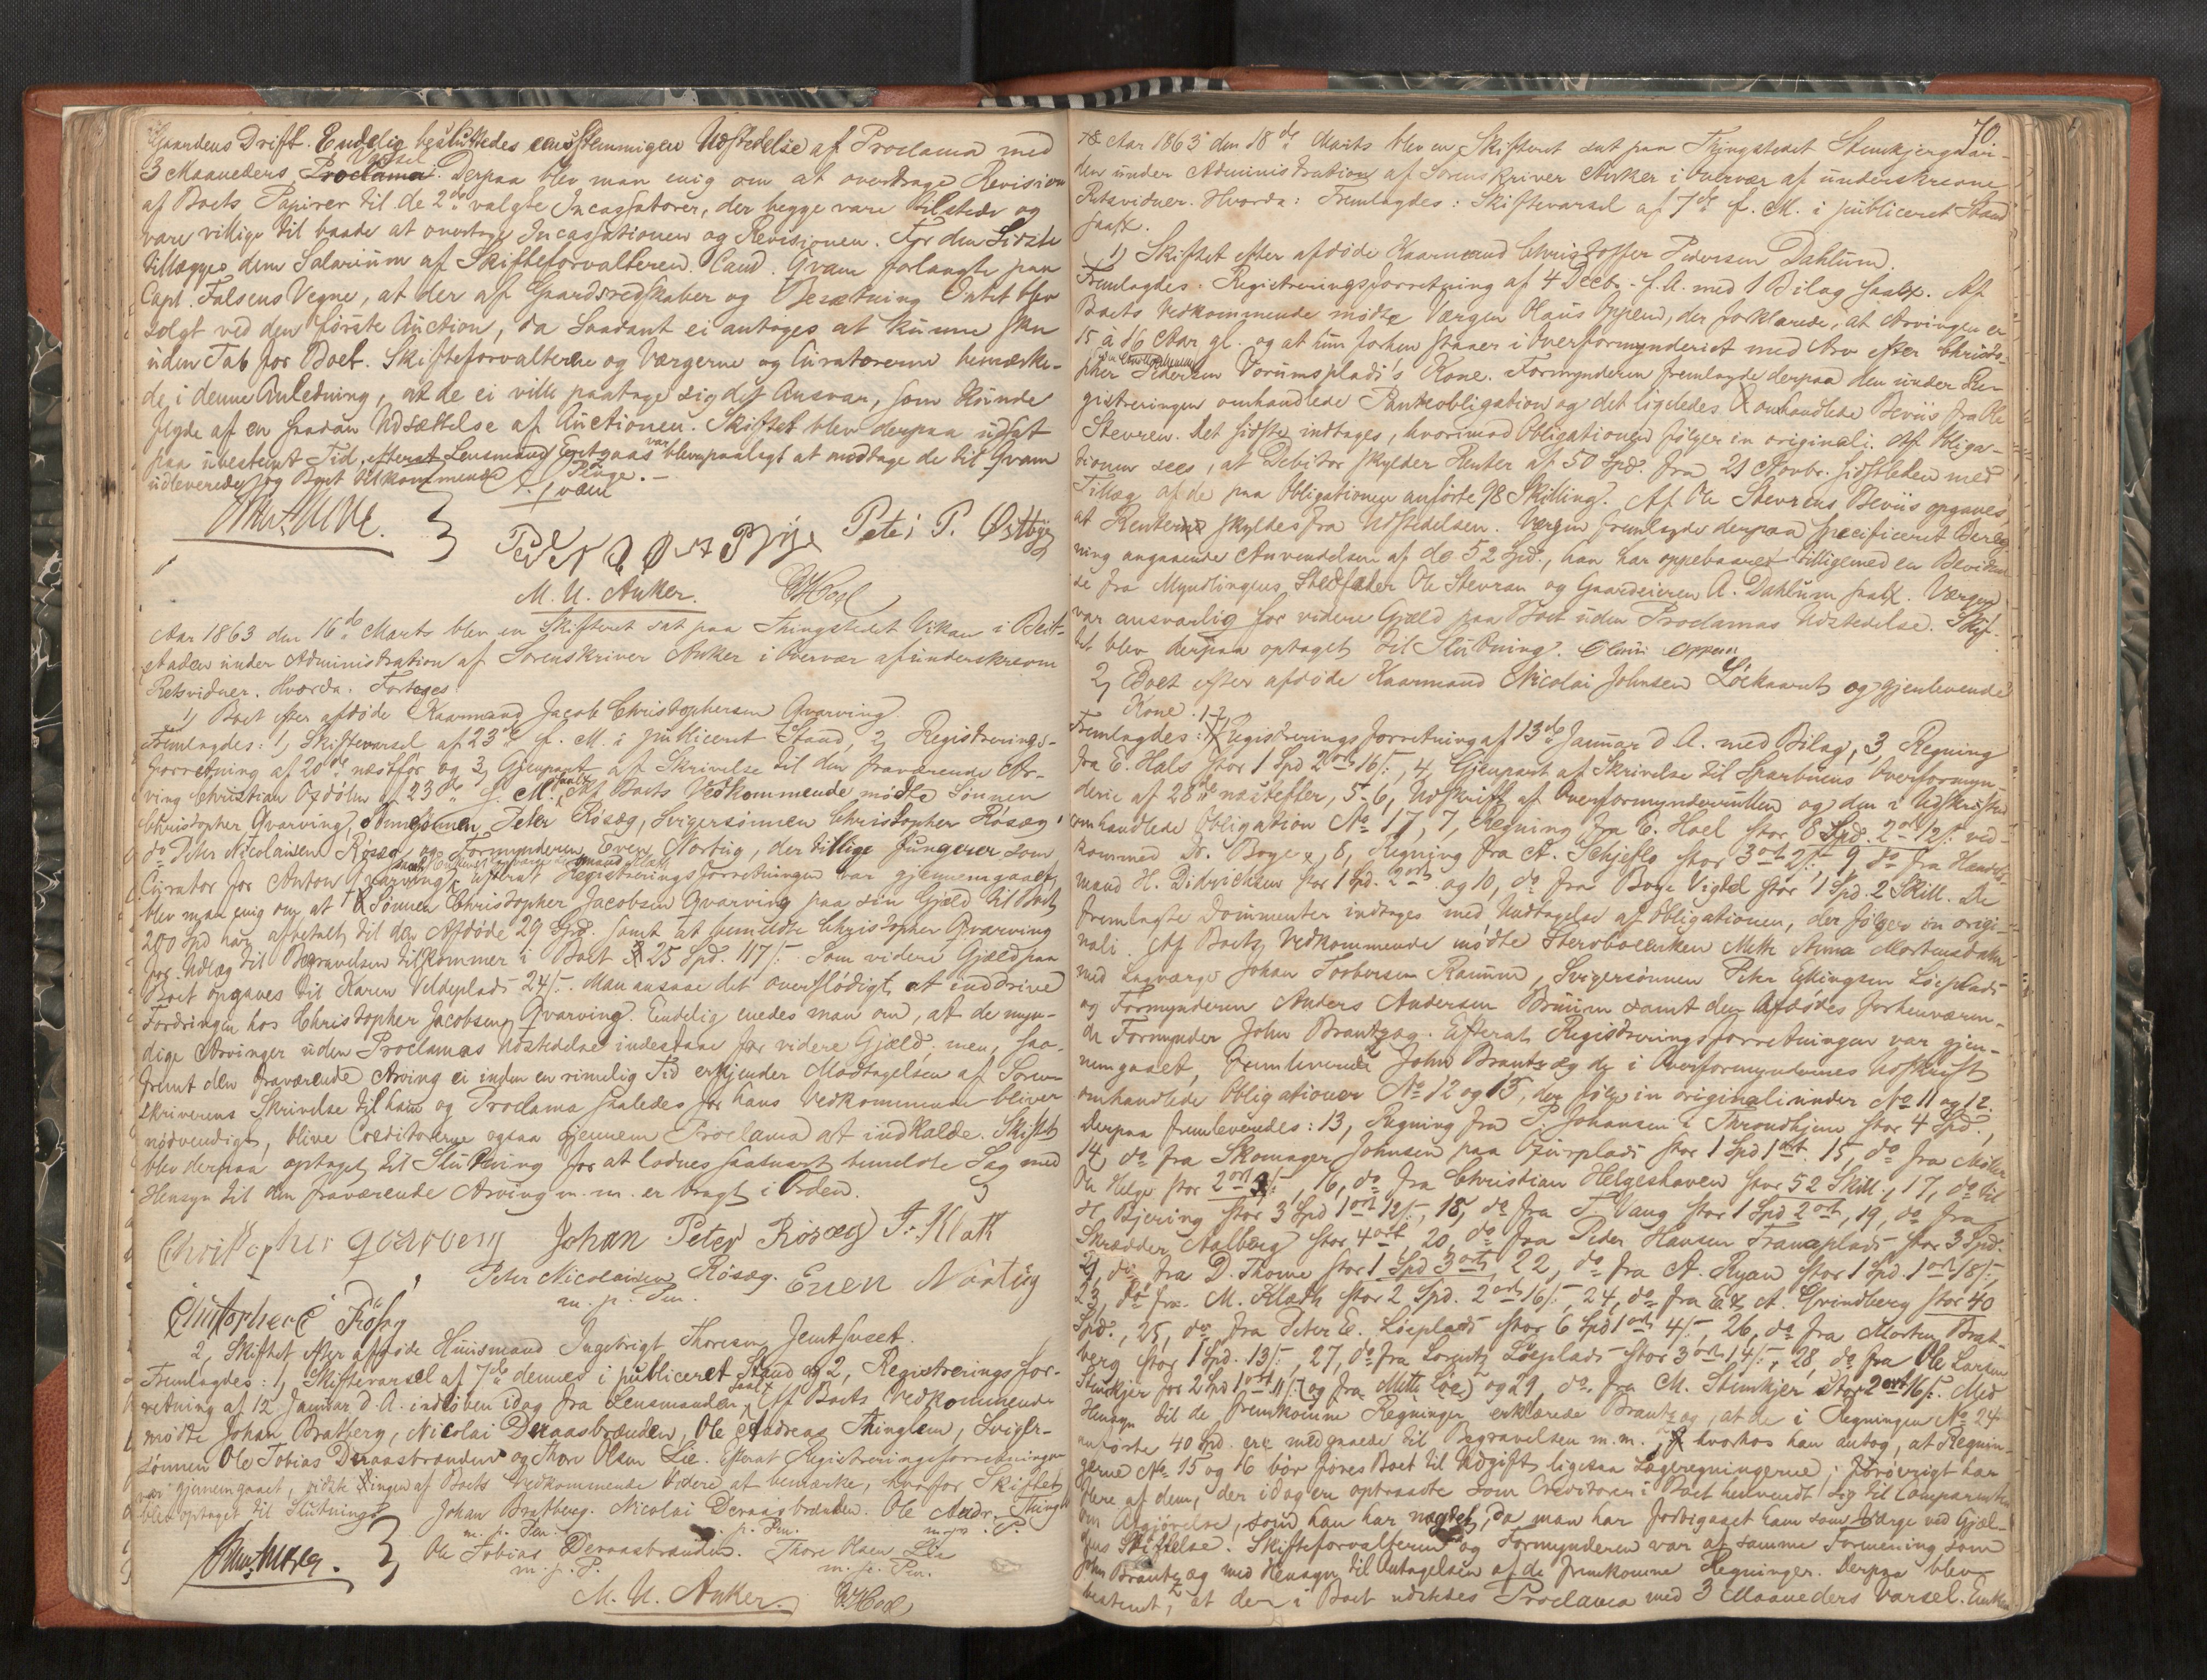 Gaardens Drift. Endelig besluttedes eenstemmigen Udstedelse af Proclama med
3 Maaneders Proclama Varsel. Derpaa blev man enig om at overdrage Revision
af Boets Papirer til de 2de valgte Incassatorer, der begge vare tilstede og
vare villige til baade at overtage Incassationen og Revisionen. For den Sidste
tillægges dem Salarium af Skifteforvalteren. Cand. Qvam forlangte paa
Capt. Falsens Vegne, at der af Gaardsredskaber og Besætning Intet blev
solgt ved den første Auction, da Saadant ei antages at kunne skee
uden Tab for Boet. Skifteforvalteren og Værgerne og Curatorerne bemærke-
de i denne Anledning, at de ei ville paatage sig det Ansvar, som kunde
flyde af en saadan Udsættelse af Auctionen. Skiftet blev derpaa udsat
paa ubestemt Tid, efterat Lensmand var blev paalagt at modtage de til Qvam
udleverede og Boet vedkommende
Qvam
Peter P. Østbye
M. U. Anker. Hoel
Aar 1863 den 16de Marts blev en Skifteret sat paa Thingstedet Vikan i Beit-
staden under Administration af Sorenskriver Anker i Overvær af underskrevne
Retsvidner. Hvorda. Foretoges:
1, Boet efter afdøde Kaarmand Jacob Christophersen Qvarving.
Fremlagdes: 1, Skiftevarsel af 23de f. M. i publiceret Stand, 2, Registrerings-
forretning af 20de næstfør og 3, Gjenpart af Skrivelse til den fraværende Ar-
ving Christian af 23de f. M. saalt. Af Boets Vedkommende mødte Sønnen
Christopher Qvarving, Peter Rösæg, Svigersønnen Christopher Rosæg,
do Peter Nicolaisen Rösæg og Formynderen Even Nortug, der tillige fungerer som
Curator for Anton Qvarving, efterat Registreringsforretningen var gjennemgaaet,
blev man enig om, at Sønnen Christopher Jacobsen Qvarving paa sin Gjæld til Boet
200 Spd har afbetalt til den Afdøde 29 Spd. samt at bemeldte Christopher Qvarving
for Udlæg til Begravelsen tilkommer i Boet 25 Spd. 117 s. Som videre Gjæld paa
Boet opgaves til Karen Veldeplads 24 s. Man ansaae det overflødigt at inddrive
Fordringen hos Christopher Jacobsen Qvarving. Endelig enedes man om, at de myn-
dige Arvinger uden Proclamas Udstedelse indestaae for videre Gjæld; men, saa-
fremt den fraværende Arving ei inden en rimelig Tid erkjender Modtagelsen af Soren-
skriverens Skrivelse til ham og Proclama saaledes for hans Vedkommende bliver
nødvendigt, blive Creditorerne ogsaa gjennem Proclama at indkalde. Skiftet
blev derpaa optaget til Slutning for at lodnes saasnart bemeldte Sag med
Hensyn til den fraværende Arving m. m. er bragt i Orden.
Christopher qvarveng Johan Peter Rösæg T. Klath
Peter Nicolaisen Rösæg. Even Nortüg
m. p. Pen.
Christopher Rösæg
2, Skiftet efter afdøde Huusmand Ingebrigt Thoresen Jemtsveet.
Fremlagdes: 1, Skiftevarsel af 7de dennes i publiceret Stand og 2, Registreringsfor-
retning af 12 Januar d. A. indløben idag fra Lensmanden, saalt. Af Boets Vedkommende
mødte Johan Bratberg, Nicolai Deraasbrænden, Ole Andreas Thinglem, Sviger-
sønnen Ole Tobias Deraasbrænden og Thore Olsen Lie. Efterat Registreringsforretningen
var gjennemgaaet, vidste Ingen af Boets Vedkommende Videre at bemærke, hvorfor Skiftet
blev optaget til Slutning. Johan Bratberg. Nicolai Deraasbrænden. Ole Andr. Thingl
m. p. Pen. m. p. Pen. m. p. P.
Ole Tobias Deraasbrænden. Thore Olsen Lie
m. p. P. m. p. Pen.
M. U. Anker. Hoel
70
Aar 1863 den 18de Marts blev en Skifteret sat paa Thingstedet Steenkjergaar-
den under Administration af Sorenskriver Anker i Overvær af underskrevne
Retsvidner. Hvorda: Fremlagdes: Skiftevarsel af 7de f. M. i publiceret Stand
saalt.
1) Skiftet efter afdøde Kaarmand Christoffer Pedersen Dahlum.
Fremlagdes: Registreringsforretning af 4 Decbr. f. A. med 1 Bilag saalt. Af
Boets Vedkommende mødte Værgen Claus Oppem, der forklarede, at Arvingen er
15 à 16 Aar gl. og at hun forhen staaer i Overformynderiet med Arv efter Christo-
pher Pedersen Vorumsplads's Kone. Formynderen fremlagde derpaa den under Re-
gistreringen omhandlede Panteobligation og det ligeledes omhandlede Beviis fra Ole
Stevren. Det sidste indtages, hvorimod Obligationen følger in originali. Af Obliga-
tionen sees, at Debitor skylder Renter af 50 Spd. fra 21 Novbr. sidstleden med
Tillæg af de paa Obligationen anførte 98 Skilling. Af Ole Stevrens Beviis opgaves,
at Renterne skyldes fra Udstedelsen. Værgen fremlagde derpaa specificeret Bereg-
ning angaaende Anvendelsen af de 52 Spd., han har oppebaaret tilligemed en
fra Myndlingens Stedfader Ole Stevran og Gaardeieren A. Dahlum saalt. Værgen
var ansvarlig for videre Gjæld paa Boet uden Proclamas Udstedelse. Skif-
tet blev derpaa optaget til Slutning. Claus Oppem
2, Boet efter afdøde Kaarmand Nicolai Johnsen Löekaunet og gjenlevende
Kone. 1-2,
Fremlagdes: Registreringsforretning af 13de Januar d. A. med Bilag, 3, Regning
fra E. Hals stor 1 Spd 2 ort 16 s., 4, Gjenpart af Skrivelse til Sparbuens Overformyn-
derie af 28de næstefter, 5-6, Udskrift af Overformynderrullen og den i Udskriften
omhandlede Obligation No 17, 7, Regning fra E. Hoel stor 8 Spd. 2 ort 12 s. ved-
kommed Dr. Boye, 8, Regning fra A. Schjeflo stor 3 ort 2 s., 9, do fra Handels-
mand H. Didrichsen stor 1 Spd. 2 ort og 10, do fra Boye Vigtel stor 1 Spd. 2 Skill. De
fremlagte Documenter indtages med Undtagelse af Obligationen, der følger in origi-
nali. Af Boets Vedkommende mødte Stervboeenken Mette Anna Mortensdatter
med Laugværge Johan Torbersen Raunet, Svigersønnen Peter Ellingsen Löeplads
og Formynderen Anders Andersen Bruum samt den Afdødes forhenværen-
de Formynder John Brantzæg. Efterat Registreringsforretningen var gjen-
nemgaaet, fremleverede John Brantzæg de i Overformynderiets Udskrift
omhandlede Obligationer No 12 og 15, der følge in originali under No 11 og 12.
Derpaa fremleveredes: 13, Regning fra P. Johansen i Throndhjem stor 4 Spd.,
14, do fra Skomager Johnsen paa stor 1 Spd 1 ort 15, do fra Møller
Ole Helge stor 2 ort, 16, do fra Christian Helgeshaven stor 52 Skill., 17, do til
H. Bjering stor 3 Spd 1 ort 12 s., 18, do fra T. Vang stor 1 Spd 2 ort, 19, do fra
Skrædder Aalberg stor 4 ort, 20, do fra Peder Hansen Tranaplads stor 3 Spd.
21, do fra D. Thorne stor 1 Spd 3 ort, 22, do fra A. Ryan stor 1 Spd. 1 ort 18 s.,
23, do fra M. Klath stor 2 Spd. 2 ort 16 s., 24, do fra E. & A. Grindberg stor 40
Spd., 25, do fra Peter E. Löeplads stor 6 Spd 1 ort 4 s., 26, do fra Morten Brat-
berg stor 1 Spd. 13 s., 27, do fra Lorentz Löeplads stor 3 ort 14 s., 28, do fra Ole Larsen
Stenkjer for 2 Spd 1 ort 11 s. (og fra Mette Löe) og 29, do fra M. Stenkjer stor 2 ort 16 s. Med
Hensyn til de fremkomne Regninger erklærede Brantzæg, at de i Regningen No 24
anførte 40 Spd. ere medgaaede til Begravelsen m. m., hvorhos han antog, at Regnin-
gerne No 15 og 16 bør føres Boet til Udgift, ligesaa Lægeregningerne; forøvrigt har
Flere af dem, der idag ere optraadte som Creditorer i Boet henvendt sig til Comparenten
om Afgjørelse, som han har nægtet, da man har forbigaaet ham som Værge ved Gjæl-
dens Stiftelse. Skifteforvalteren og Formynderen var af samme Formening som
John Brantzæg med Hensyn til Antagelsen af de fremkomne Regninger. Derpaa blev
bestemt, at der i Boet udstedes Proclama med 3 Maaneders Varsel. Enken